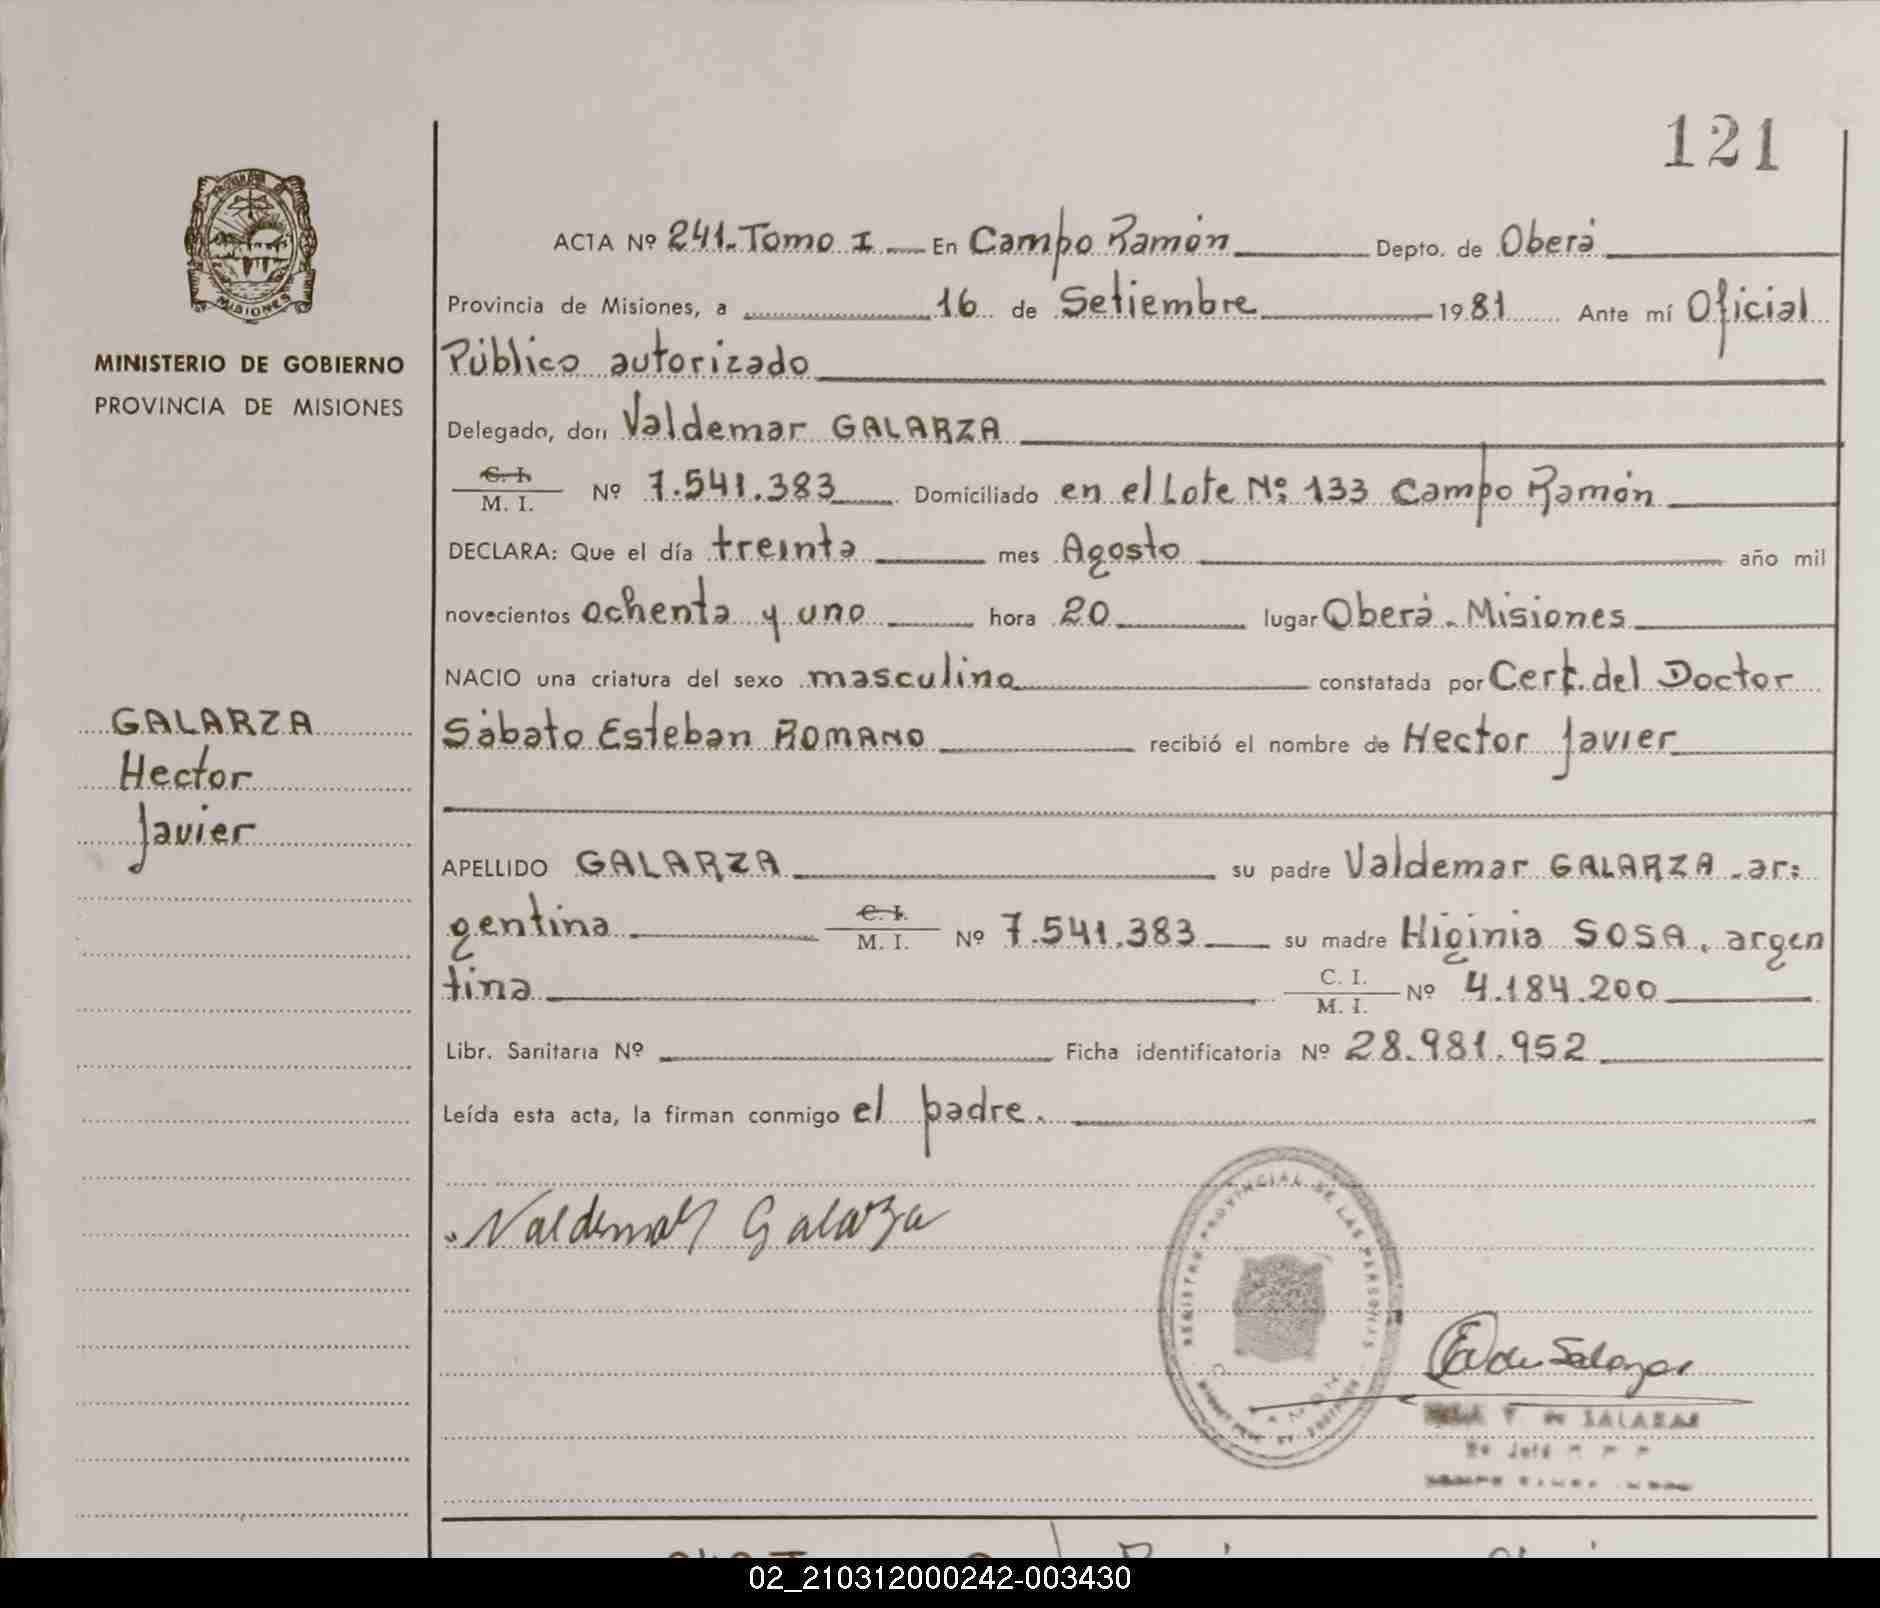 121
ACTA Nº 241. Tomo I En Campo Ramón Depto. de Oberá
Provincia de Misiones, a 16 de Setiembre 1981 Ante mí Oficial
Público autorizado
MINISTERIO DE GOBIERNO
PROVINCIA DE MISIONES
Delegado, don Valdemar GALARZA
C. I.
M. I. Nº 7.541.383 Domiciliado en el Lote Nº 133 Campo Ramón
DECLARA: Que el día treinta mes Agosto año mil
novecientos ochenta y uno hora 20 lugar Oberá. Misiones
NACIO una criatura del sexo masculino constatada por Cert. del Doctor
Sábato Esteban ROMANO recibió el nombre de Hector Javier
GALARZA
Hector
Javier
APELLIDO GALARZA su padre Valdemar GALARZA - ar:
gentina C. I. M. I. Nº 7.541.383 su madre Higinia SOSA, argen
tina C. I. M. I. Nº 4.184.200
Libr. Sanitaria Nº Ficha identificatoria Nº 28.981.952
Leída esta acta, la firman conmigo el padre.
Valdemar Galarza
REGISTRO PROVINCIAL DE LAS PERSONAS
de Salazar
de SALAZAR
MISIONES
02_210312000242-003430